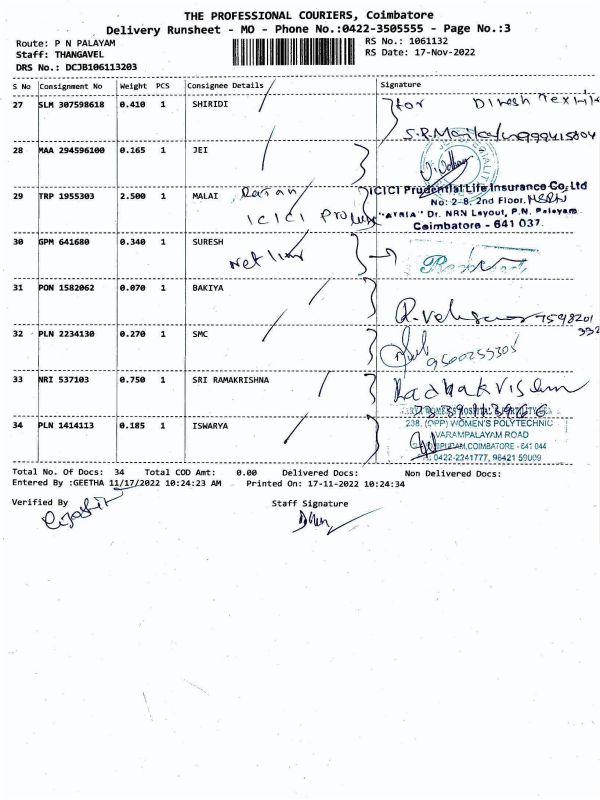 THE PROFESSIONAL COURIERS, Coimbatore
Delivery Runsheet - MO - Phone No.:0422-3505555 - Page No.:3
Route: P N PALAYAM
Staff: THANGAVEL
DRS No.: DCJB106113203
RS No.: 1061132
RS Date: 17-Nov-2022
S No Consignment No Weight PCS Consignee Details Signature
27 SLM 307598618 0.410 1 SHIRIDI
for Dinesh Textile
28 MAA 294596100 0.165 1 JEI
29 TRP 1955303 2.500 1 MALAI
ICICI
ICICI Prudential Life Insurance Co. Ltd
No: 2-8, 2nd Floor,
"ATRIA" Dr. NRN Layout, P.N. Palayam
Coimbatore - 641 037.
30 GPM 641680 0.340 1 SURESH
Net link
31 PON 1582062 0.070 1 BAKIYA
32 PLN 2234130 0.270 1 SMC
9500255305
33 NRI 537103 0.750 1 SRI RAMAKRISHNA
Radhakrishnan
34 PLN 1414113 0.185 1 ISWARYA
238, (OPP) WOMEN'S POLYTECHNIC
VARAMPALAYAM ROAD
COIMBATORE - 641 044
0422-2241777, 98421 59009
Total No. Of Docs: 34 Total COD Amt: 0.00 Delivered Docs: Non Delivered Docs:
Entered By :GEETHA 11/17/2022 10:24:23 AM Printed On: 17-11-2022 10:24:34
Verified By Staff Signature